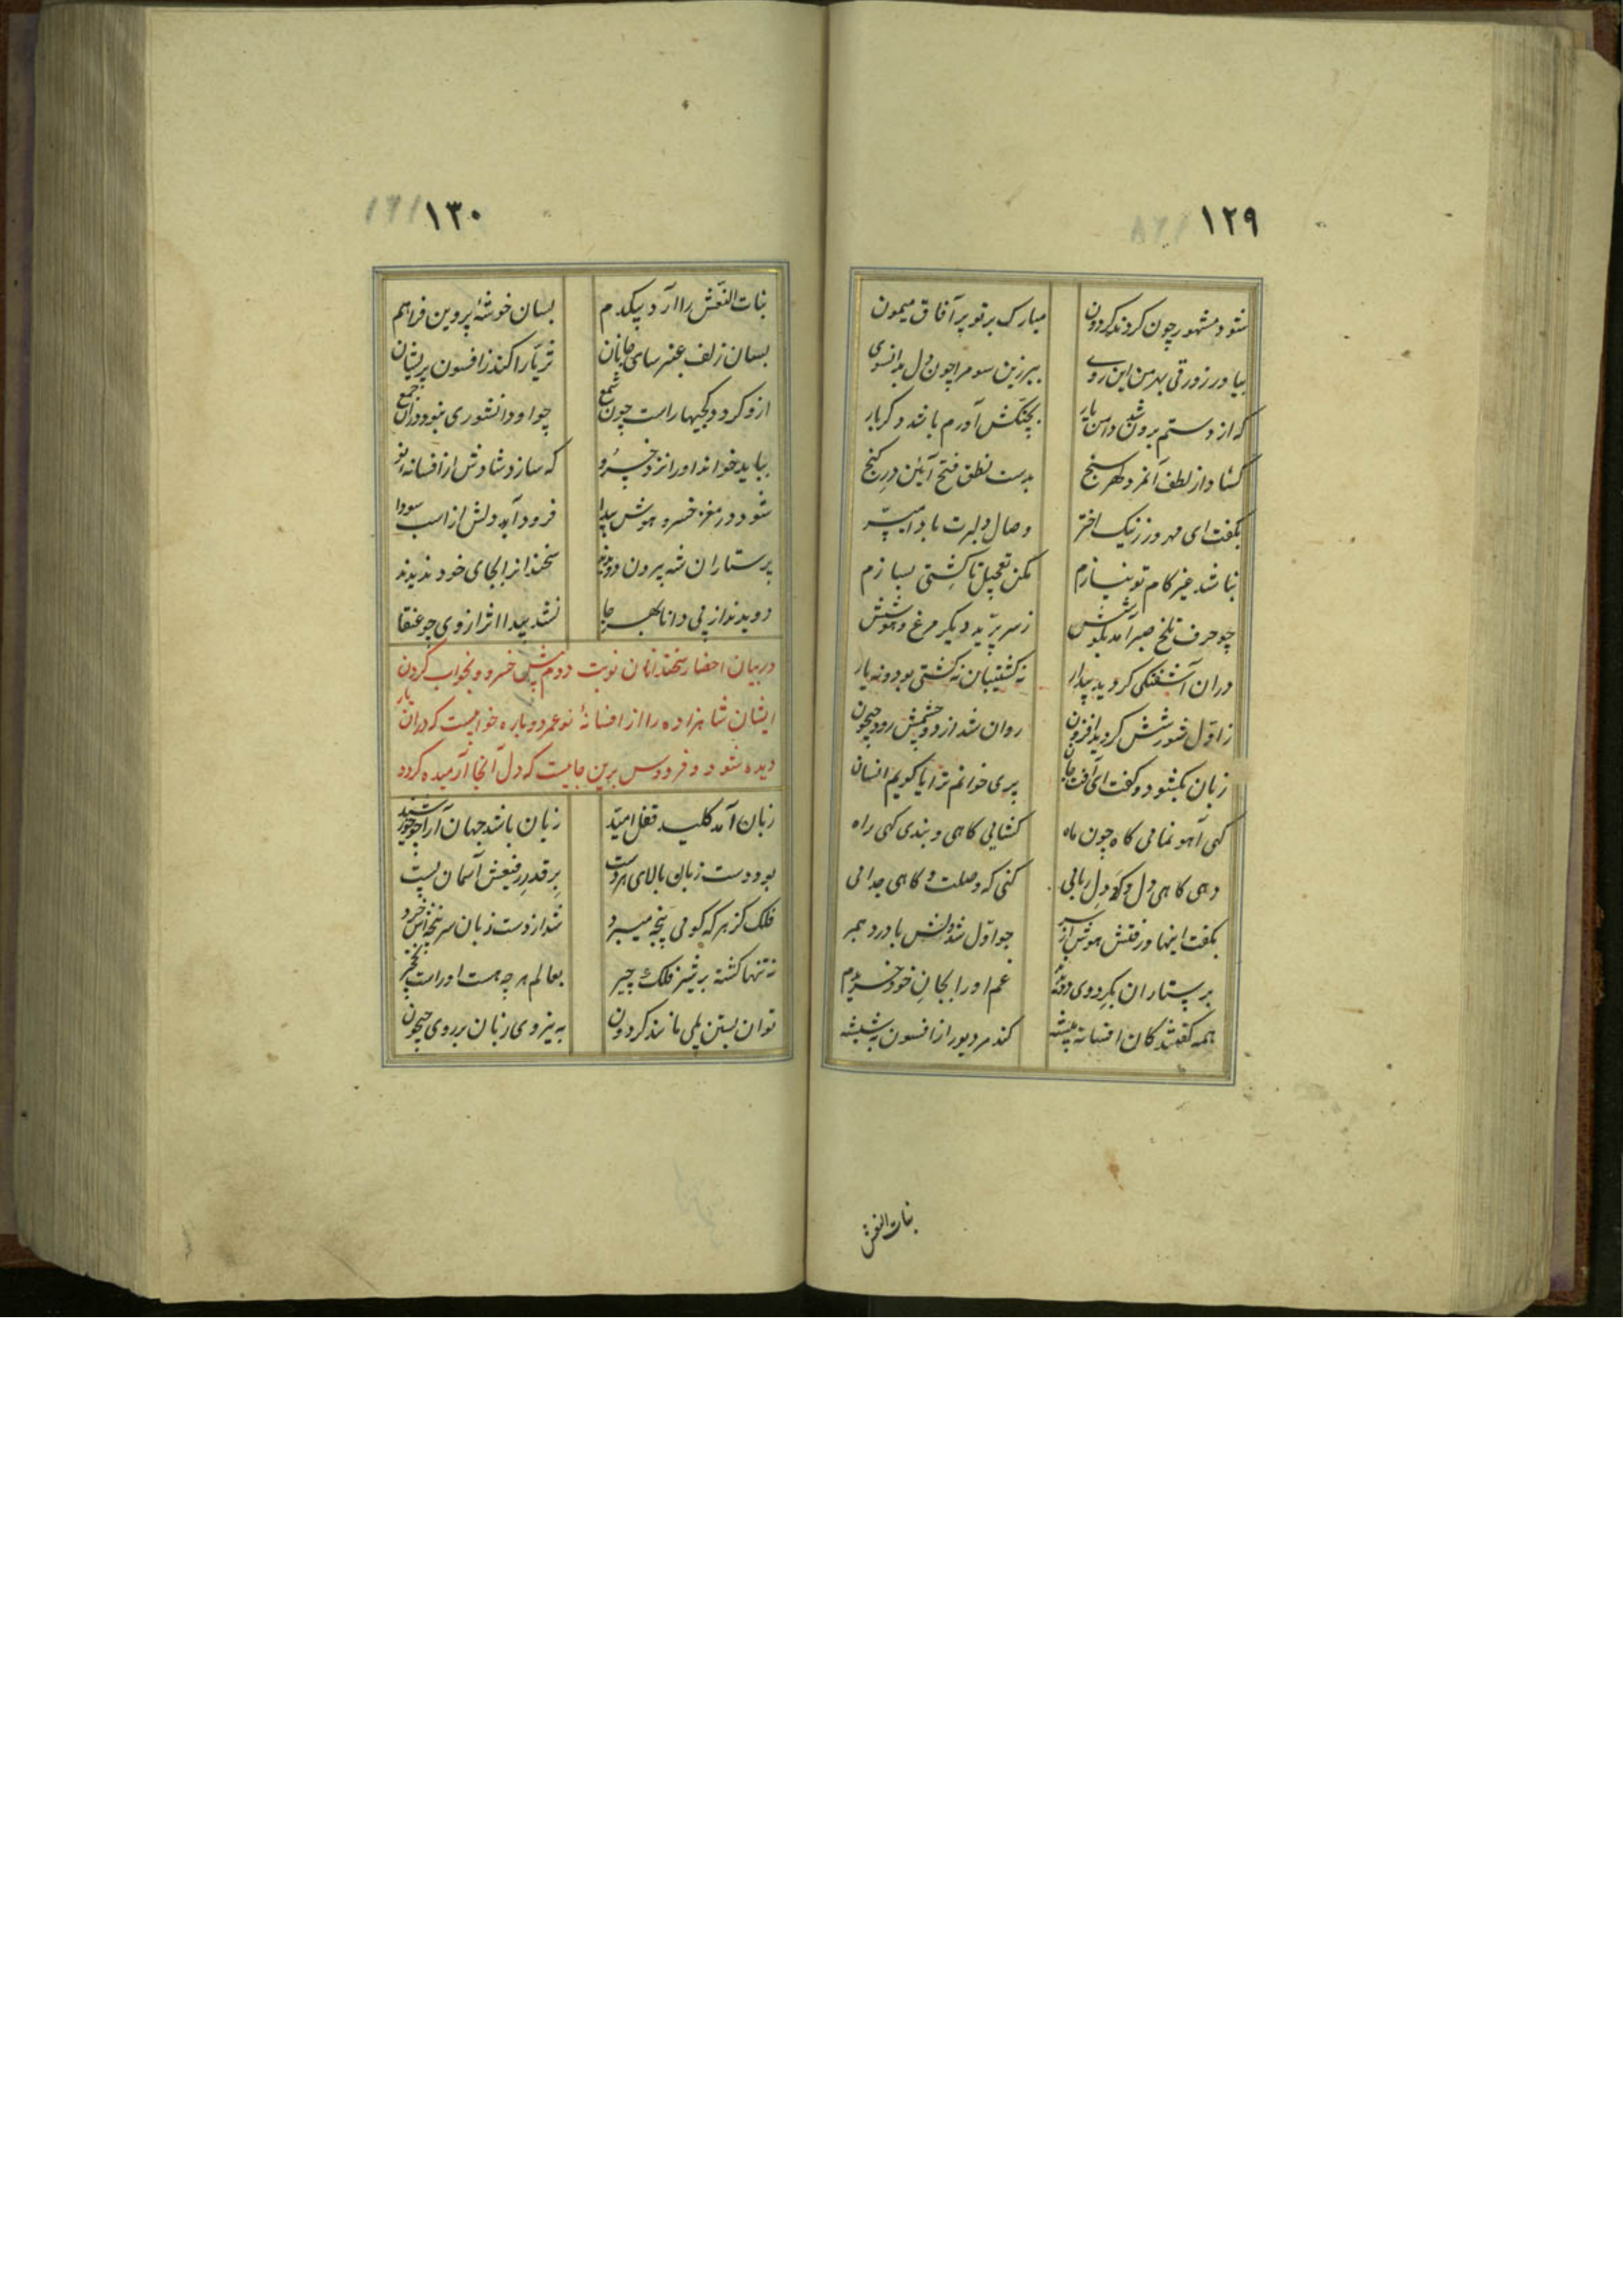 ۱۲۹
شود مشهور چون گردند گردون مبارک بر تو بر آفاق میمون
بیاور زورقی بهر من این روے ببر زین سو مرا چون دل بدانسوی
که از دستم برون شد دامن یار بچنگش آورم باشد دگر بار
گشاد از لطف آنمرد گهر سنج بدست نطق فتح آئین در گنج
بگفت ای مهرورز نیک اختر وصال دلبرت بادا میسر
نباشد غیر کام تو نیازم مکن تعجیل تا کشتی بسازم
چو حرف تلخ صبر آمد بگوشش ز سر پرید دیگر مرغ هوشش
دران آشفتگی گردید بیدار نه کشتیبان نه کشتی بود و نه یار
ز اول شورشش گردید افزون روان شد از دو چشمش رود جیحون
زبان بگشود و گفت ای آفت جان پری خوانم ترا یا گویم انسان
گهی آهو نمائی گاه چون ماه گشایی گاهی و بندی گهی راه
دهی گاهی دل و گه دل ربائی کنی گه وصلت و گاهی جدائی
بگفت اینها و رفتش هوش از سر چو اول شد دلش با درد همبر
پرستاران بگرد وی دویدند غم او را بجان خود خریدم
همه گفتند کان افسانه پیشه کند مر دیو را از افسون به شیشه
بنات النعش
۱۳۰
بنات النعش را آرد بیکدم بسان خوشهٔ پروین فراهم
بسان زلف عنبرسای جانان ثریا را کند ز افسون پریشان
ازو گردد کجیها راست چون شمع چو او دانشوری نبود دران جمع
بباید خواند او را نزد خسرو که سازد شادش از افسانه نو
شود در مغز خسرو هوش پیدا فرود آید دلش از اسب سودا
پرستاران شه بیرون دویدند سخندانرا بجای خود ندیدند
دویدند از پی دانا بهر جا نشد پیدا اثر از وی چو عنقا
در بیان احضار سخندانان نوبت دوم پیش خسرو و بخواب کردن
ایشان شاهزاده را از افسانهٔ نو عمر دوباره خوابیست که دران یار
دیده شود و فردوس برین جاییست که دل آنجا آرمیده گردد
زبان آمد کلید قفل امید زبان باشد جهان آرا چو خورشید
بود دست زبان بالای هر دست بر قدر رفیعش آسمان پست
فلک کز هر که گوئی پنجه میبرد شد از دست زبان سر پنجه اش خرد
نه تنها گشته بر شیر فلک چیر بعالم هر چه هست او راست نخچیر
توان بستن پلی مانند گردون به نیروی زبان بر روی جیحون